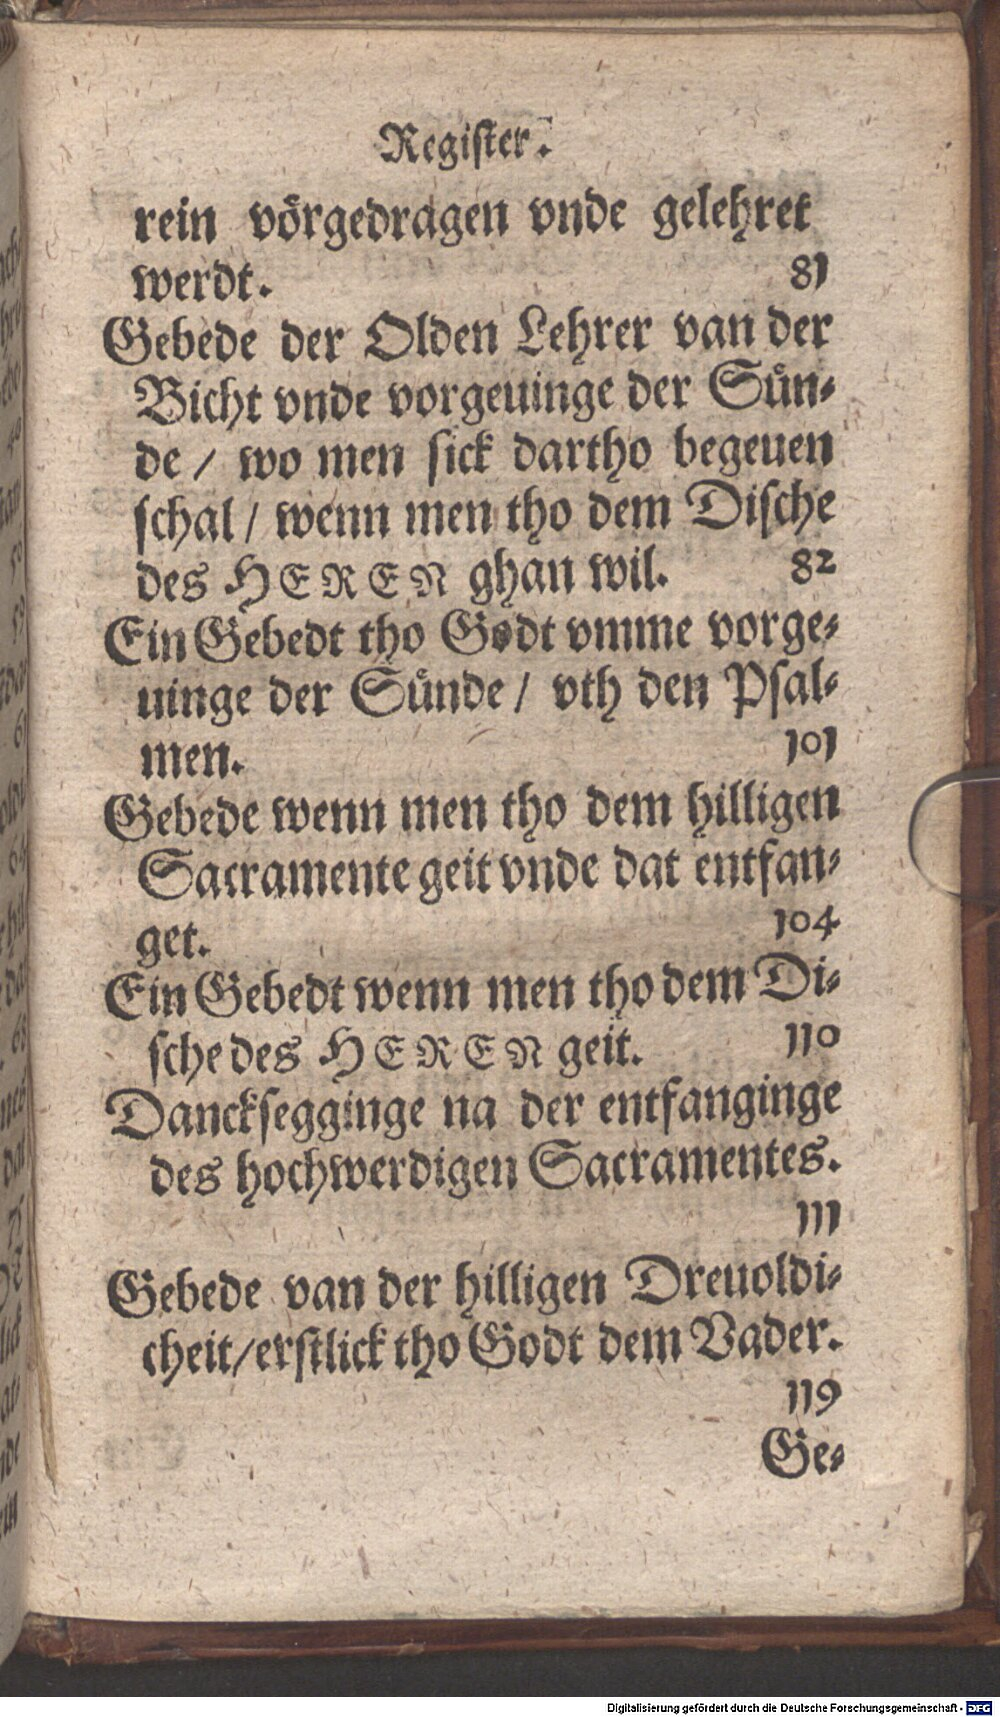 Register.
rein vörgedragen vnde gelehret
werdt. 81
Gebede der Olden Lehrer van der
Bicht vnde vorgeuinge der Sün-
de / wo men sick dartho begeuen
schal / wenn men tho dem Dische
des HEREN ghan wil. 82
Ein Gebedt tho Godt vmme vorge-
uinge der Sünde / vth den Psal-
men. 101
Gebede wenn men tho dem hilligen
Sacramente geit vnde dat entfan-
get. 104
Ein Gebedt wenn men tho dem Di-
sche des HEREN geit. 110
Danckseggınge na der entfanginge
des hochwerdigen Sacramentes.
111
Gebede van der hilligen Dreuoldi-
cheit / erstlick tho Godt dem Vader.
119
Ge-
Digitalisierung gefördert durch die Deutsche Forschungsgemeinschaft - DFG